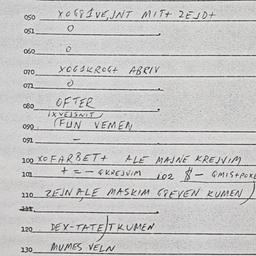 050 XOGPIVE,JNT MIT+ ZEJD+
051 0
060 0
070 XOGIKROG+ ABRIV
071 0
080 OFTER
(XVEJSNIT)
090 (FUN VEMEN
091 -
100 XOFARBET+ ALE MAJNE KREJVIM
101 + = - GKREJVIM 102 $ -
110 ZEJN ALE MASKIM GREVEN KUMEN)
111
120 DEX-TATE/TKUMEN
130 MUMES VELN